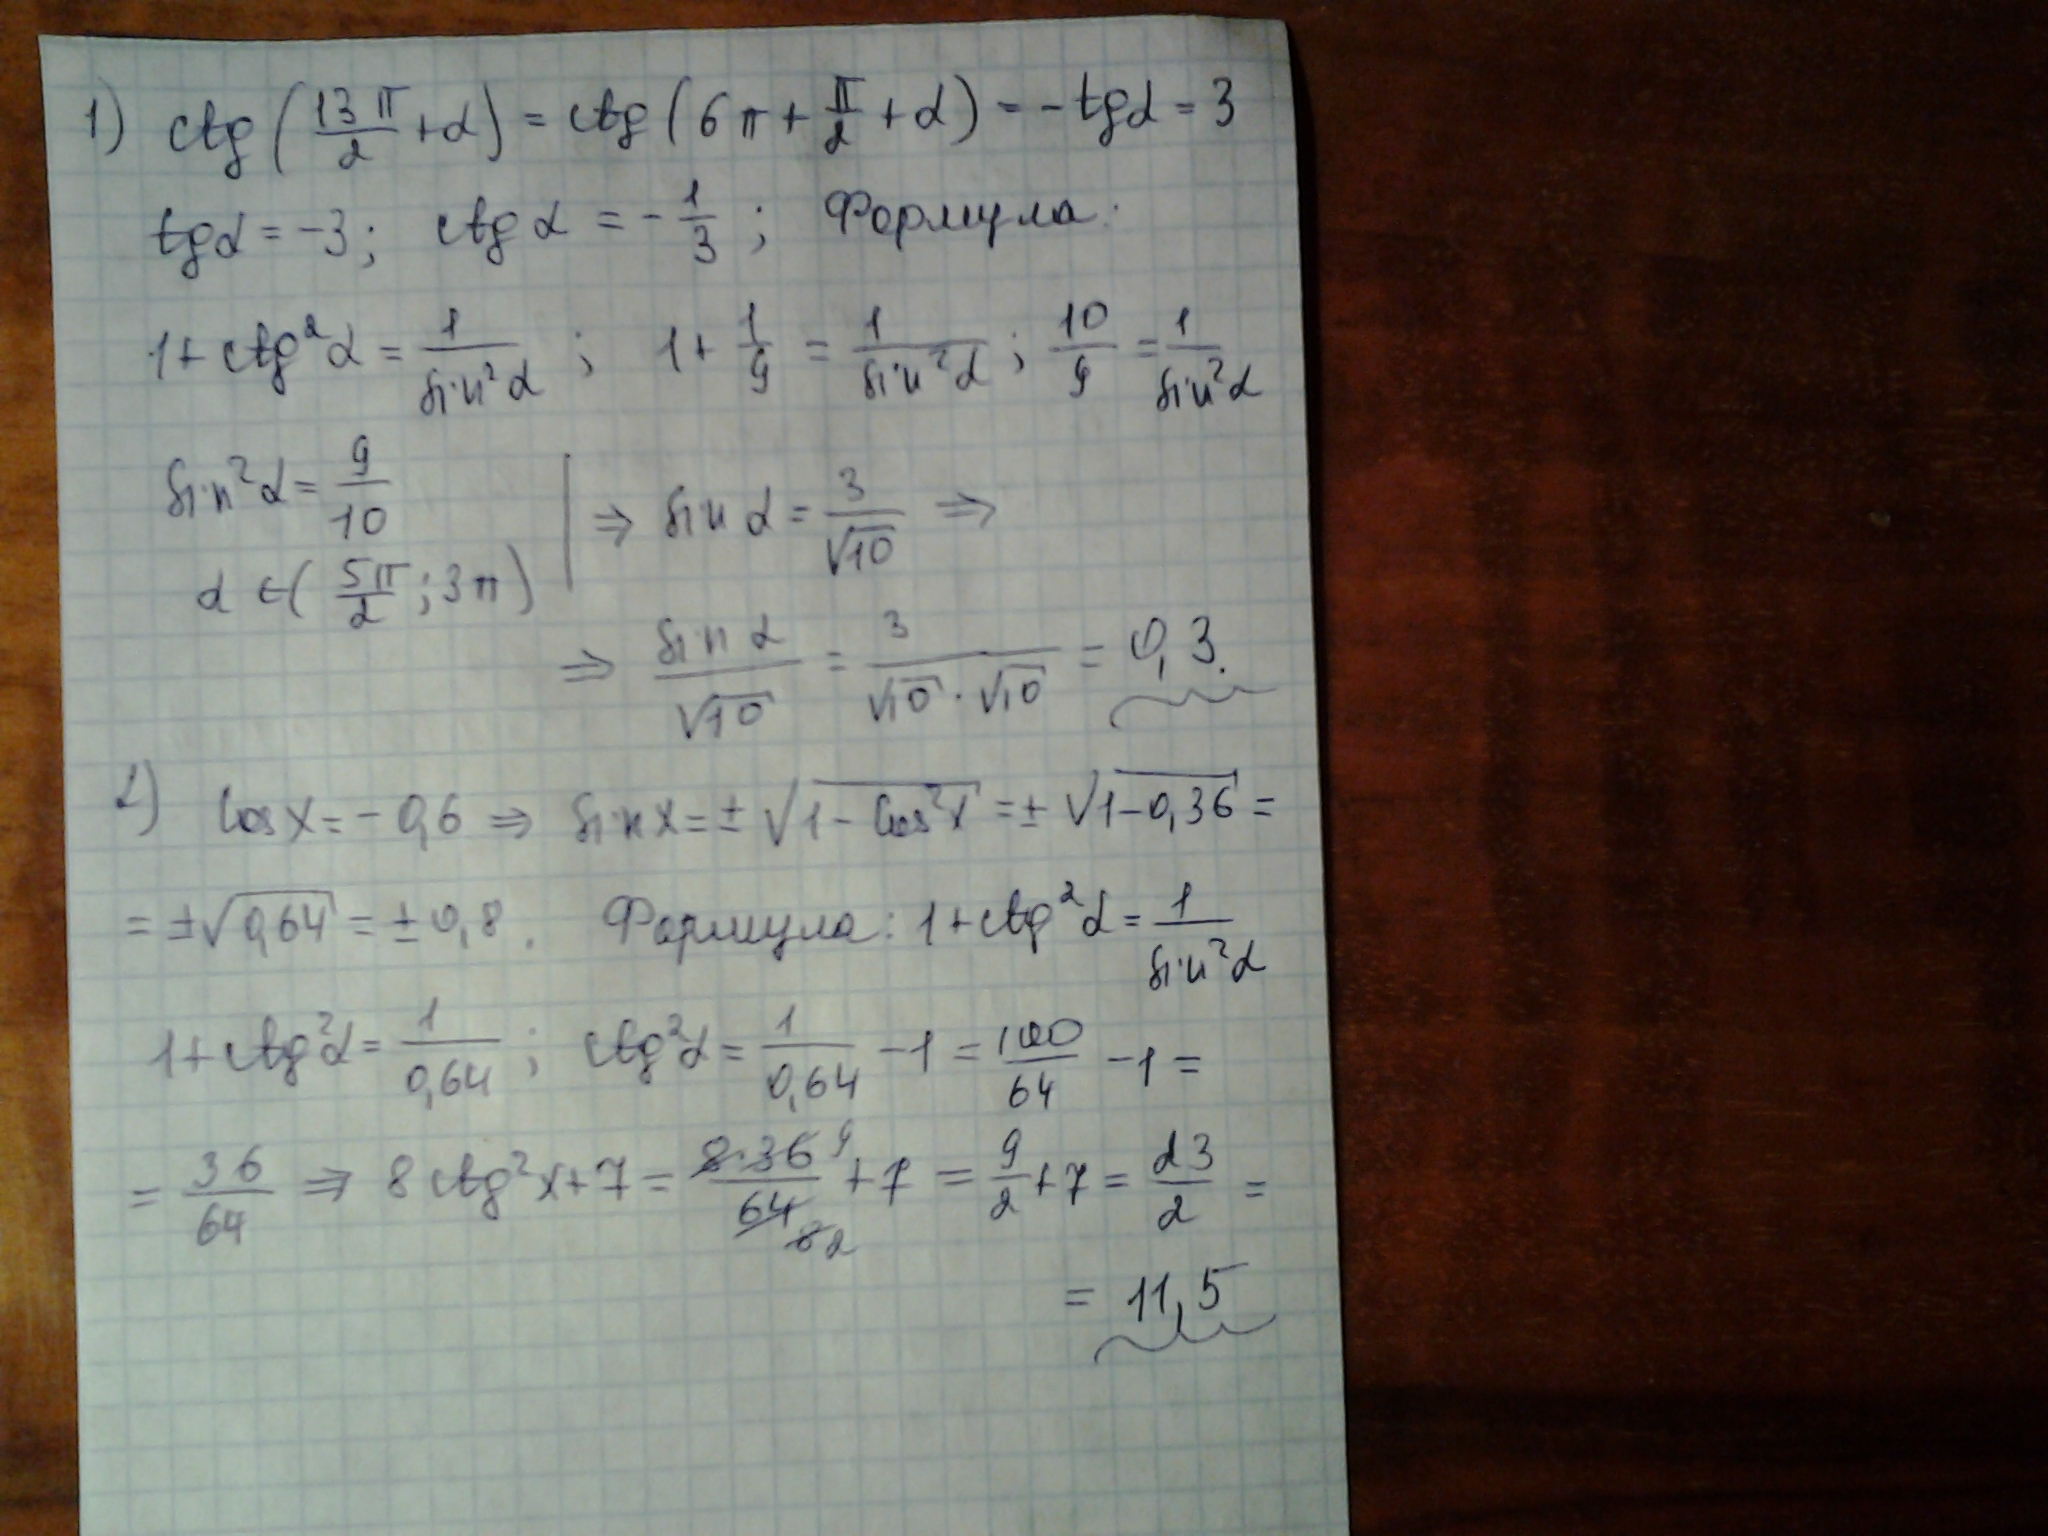 1) ctg(13π/2 + α) = ctg(6π + π/2 + α) = -tgα = 3
tgα = -3; ctgα = -1/3; Формула:
1 + ctg²α = 1/sin²α ; 1 + 1/9 = 1/sin²α ; 10/9 = 1/sin²α
sin²α = 9/10
α ∈ (5π/2; 3π) | ⇒ sinα = 3/√10 ⇒
⇒ sinα/√10 = 3/(√10·√10) = 0,3.
2) cosx = -0,6 ⇒ sinx = ±√(1 - cos²x) = ±√(1-0,36) =
= ±√0,64 = ±0,8. Формула: 1 + ctg²α = 1/sin²α
1 + ctg²α = 1/0,64 ; ctg²α = 1/0,64 - 1 = 100/64 - 1 =
= 36/64 ⇒ 8ctg²x + 7 = 8·36 9/64 8 2 + 7 = 9/2 + 7 = 23/2 =
= 11,5